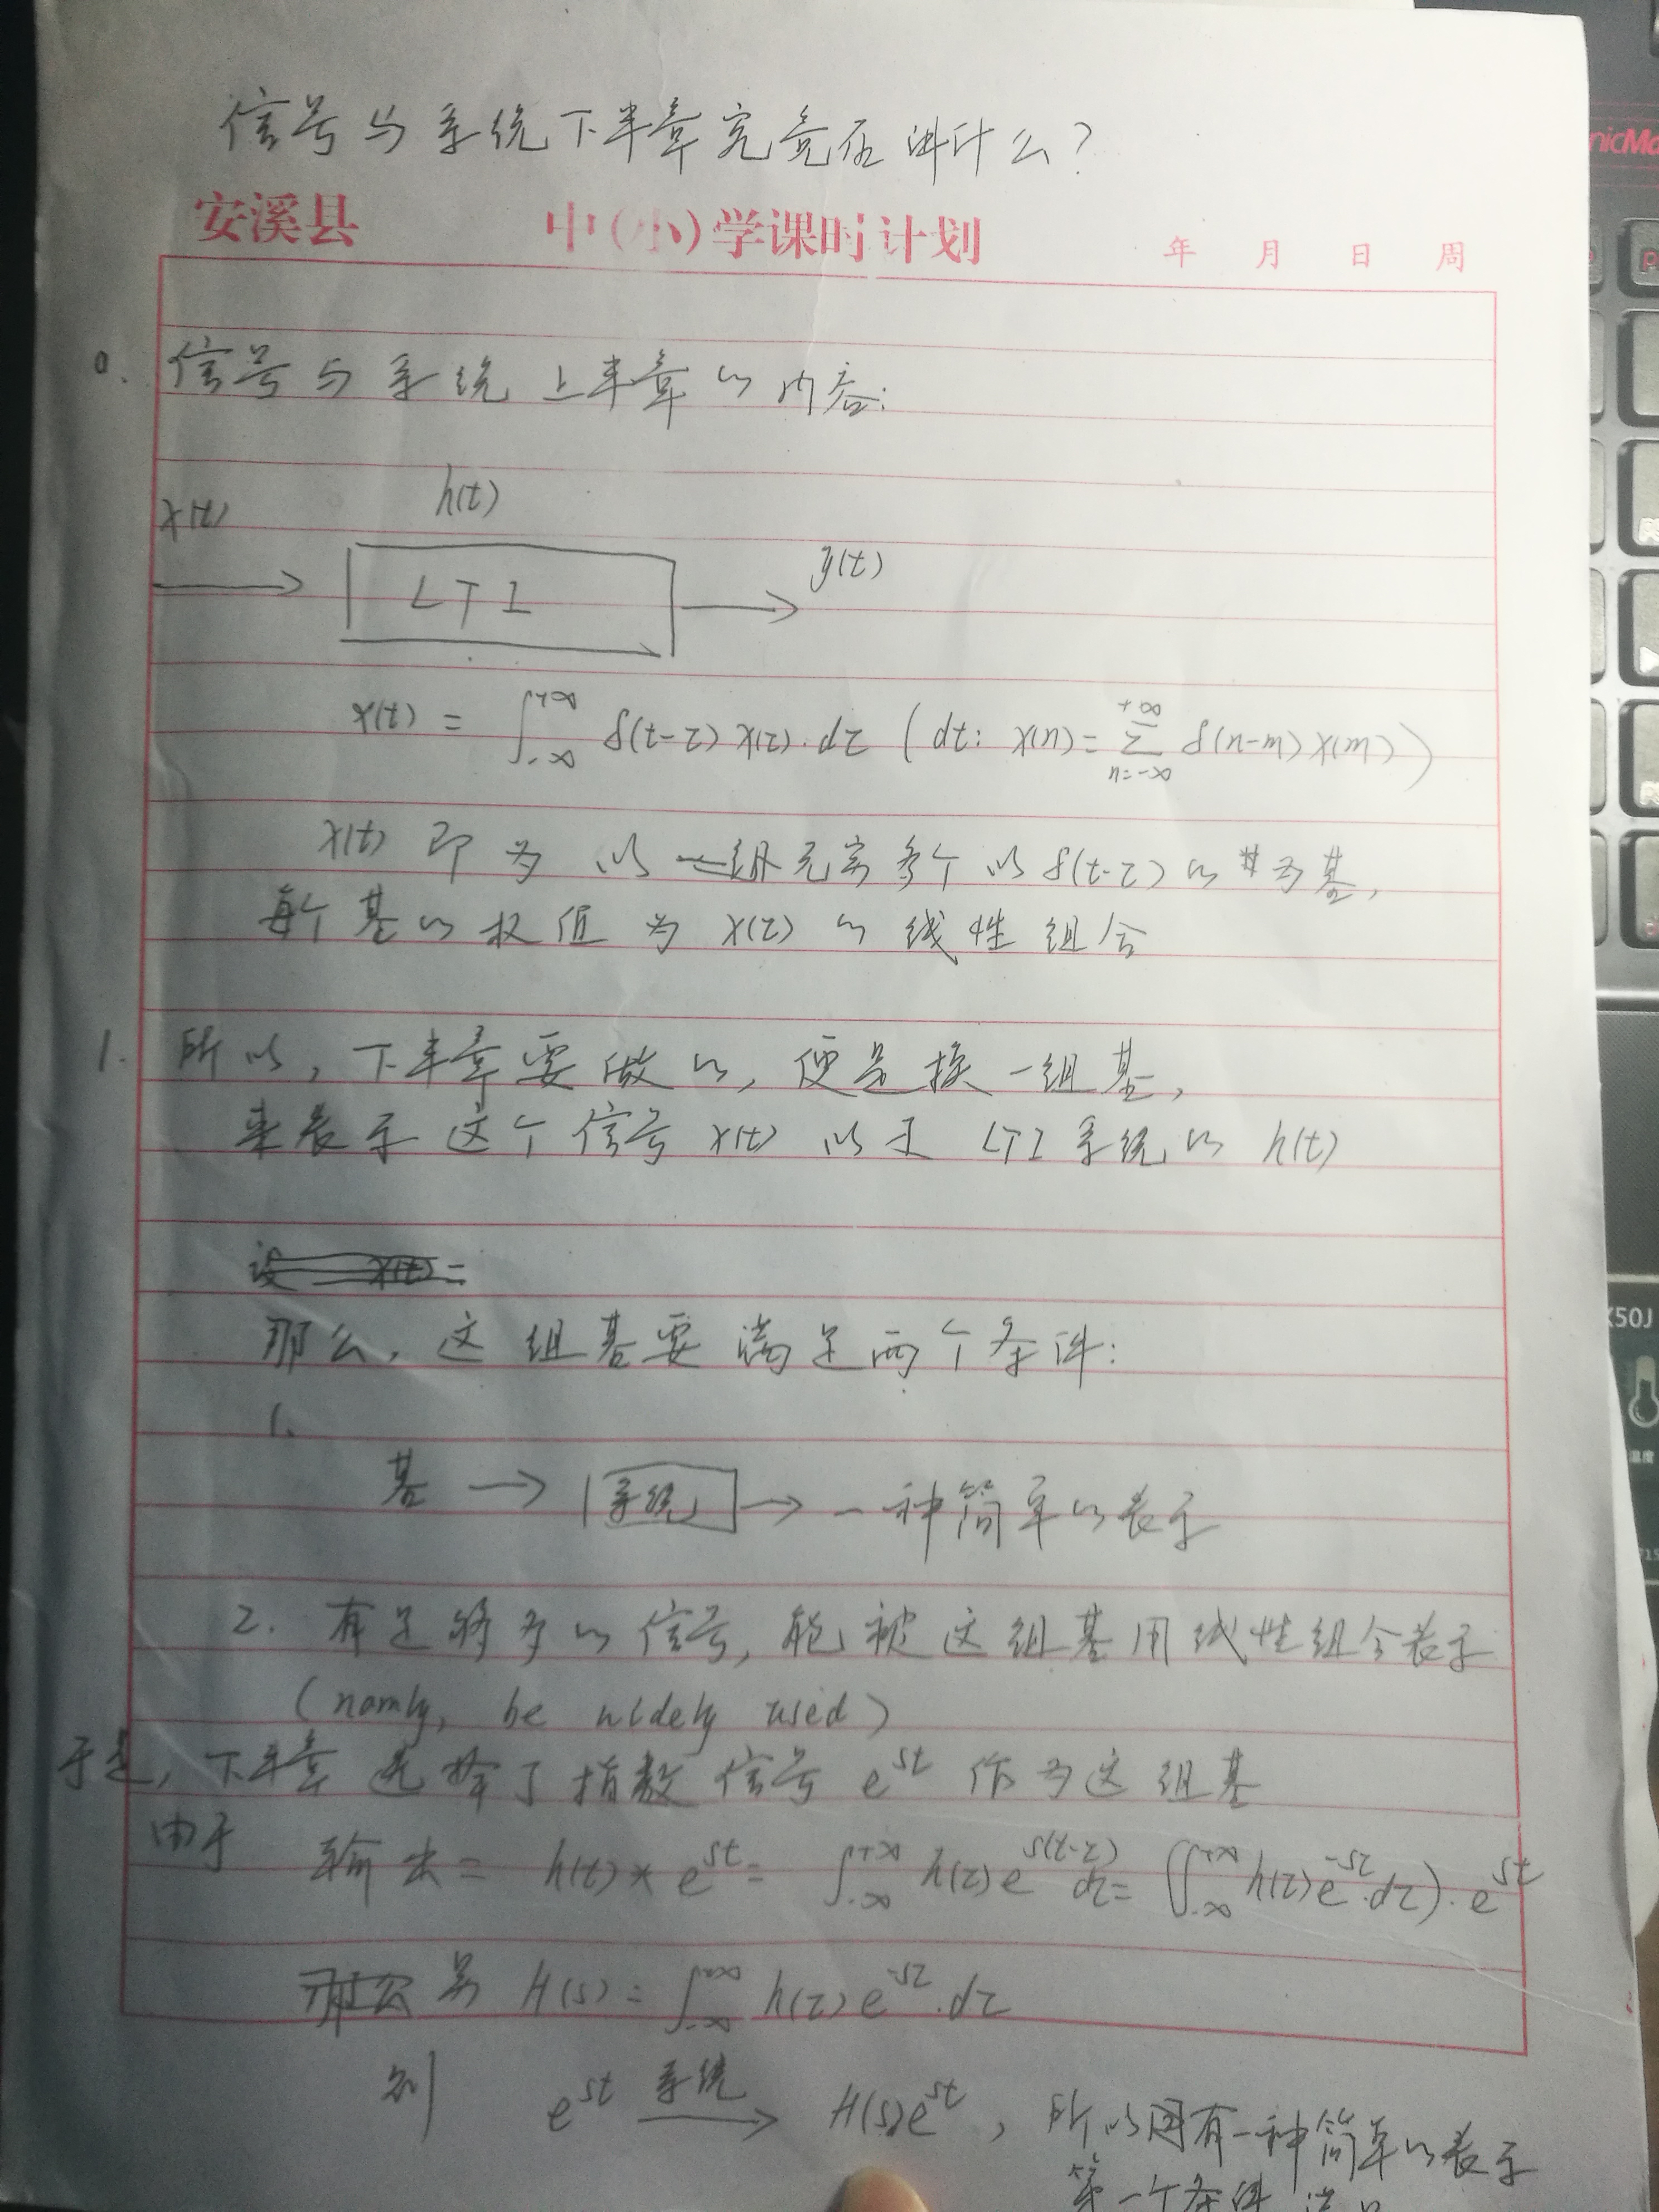 信号与系统下半章究竟在讲什么?
安溪县 中(小)学课时计划 年 月 日 周
0. 信号与系统上半章的内容:
x(t) h(t)
LTI y(t)
x(t) = ∫_{-∞}^{+∞} δ(t-τ) x(τ)·dτ (dt: x(n) = Σ_{n=-∞}^{+∞} δ(n-m) x(m))
x(t) 即为以一组无穷多个以 δ(t-τ) 的 为基,
每个基的权值为 x(τ) 的线性组合
1. 所以, 下半章要做的, 便是换一组基,
来表示这个信号 x(t) 以及 LTI 系统的 h(t)
设 x(t) =
那么, 这组基要满足两个条件:
1.
基 → 系统 → 一种简单的表示
2. 有足够多的信号, 能被这组基用线性组合表示
(namly, be widely used)
于是, 下半章选择了指数信号 e^{st} 作为这组基
由于 输出 = h(t) * e^{st} = ∫_{-∞}^{+∞} h(τ) e^{s(t-τ)} dτ = (∫_{-∞}^{+∞} h(τ) e^{-sτ}·dτ)·e^{st}
那么 另 H(s) = ∫_{-∞}^{+∞} h(τ) e^{-sτ}·dτ
则 e^{st} 系统 → H(s)e^{st}, 所以 有一种简单的表示
第一个条件